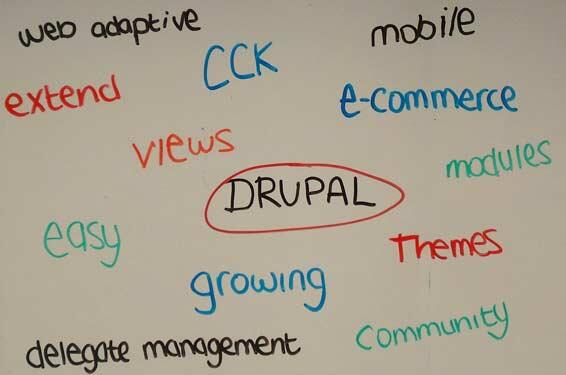 web adaptive
mobile
CCK
extend
e-commerce
views
modules
DRUPAL
easy
Themes
growing
community
delegate management